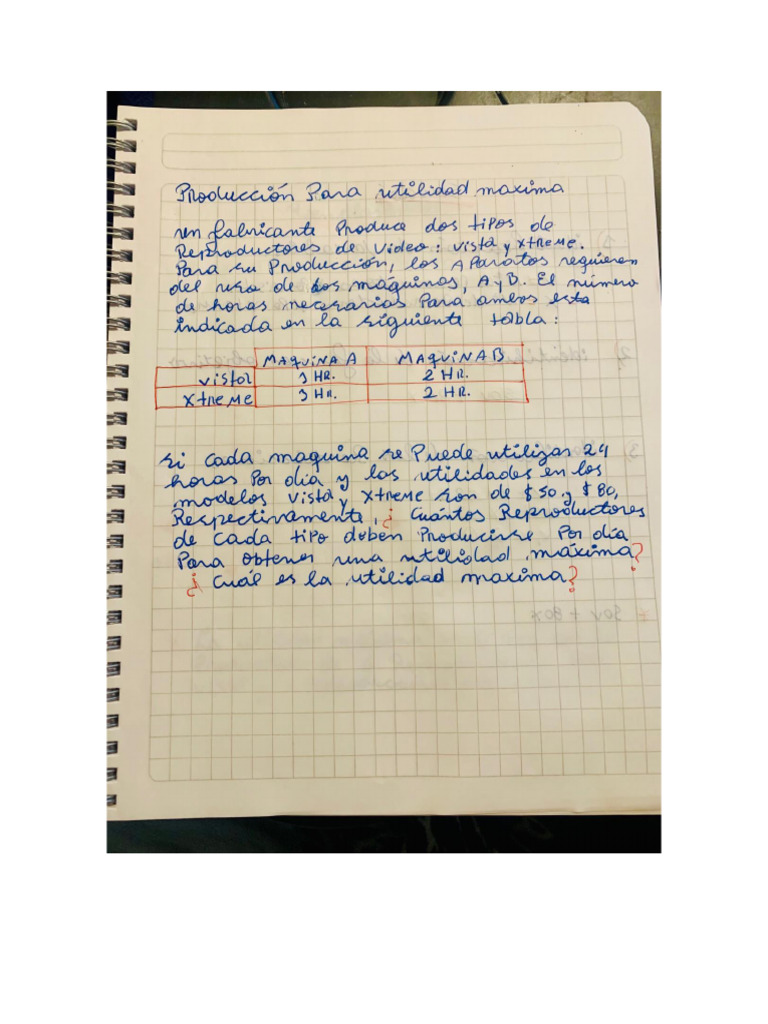 Producción Para utilidad maxima
un fabricante Produce dos tipos de
Reproductores de Video: Vista y Xtreme.
Para su Producción, los Aparatos requieren
del uso de dos máquinas, A y B. El número
de horas necesarias Para ambos esta
indicada en la siguiente tabla:
MAQUINA A MAQUINA B
Vista 1 HR. 2 HR.
XtReMe 3 HR. 2 HR.
si cada maquina se Puede utilizar 24
horas Por día y las utilidades en los
modelos Vista y Xtreme son de $50 y $80,
Respectivamente, ¿Cuántos Reproductores
de cada tipo deben Producirse Por día
Para obtener una utilidad máxima?
¿Cuál es la utilidad maxima?